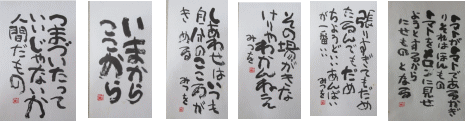 つまづいたって
いいじゃないか
人間だもの
いまから
ここから
しあわせはいつも
自分のこころが
きめる
みつを
その場がきな
けりゃわかんねえ
みつを
「張りすぎてもだめ
たるんでもだめ
ちょうどいいあんばい
が一番いい
みつを
トマトがトマトであるかぎ
りそれはほんもの
トマトをメロンに見せ
ようとするから
にせものとなる